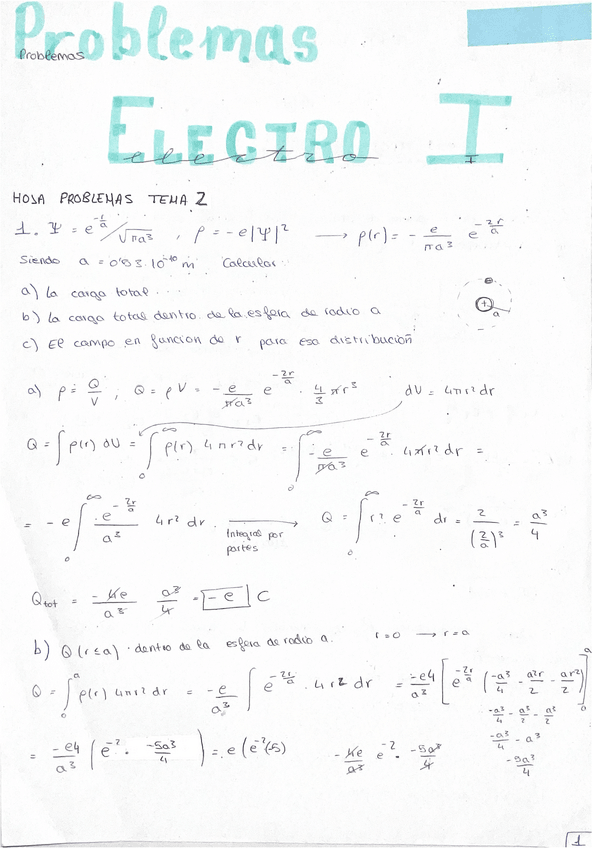 Problemas
Problemas
ELECTRO I
electro I
HOJA PROBLEMAS TEMA 2
1. Ψ = e^{-r/a} / √πa³ , ρ = -e|Ψ|² → ρ(r) = - e/πa³ e^{-2r/a}
Siendo a = 0'53·10⁻¹⁰ m Calcular
a) La carga total
b) La carga total dentro de la esfera de radio a
c) El campo en funcion de r para esa distribución
e
+
a
a) ρ = Q/V ; Q = ρV = - e/πa³ e^{-2r/a} · 4/3 πr³ dV = 4πr² dr
Q = ∫ ρ(r) dV = ∫₀^∞ ρ(r) 4πr² dr = ∫₀^∞ - e/πa³ e^{-2r/a} 4πr² dr =
= -e ∫₀^∞ e^{-2r/a}/a³ 4r² dr Integral por partes → Q = ∫₀^∞ r² e^{-2r/a} dr = 2/(2/a)³ = a³/4
Q_tot = -4e/a³ a³/4 = -e C
b) Q(r≤a) · dentro de la esfera de radio a. r=0 → r=a
Q = ∫₀^a ρ(r) 4πr² dr = -e/a³ ∫ e^{-2r/a} · 4r² dr = -e4/a³ [e^{-2r/a} (-a³/4 - a²r/2 - ar²/2)]
-a³/4 - a³/2 - a³/2
-a³/4 - a³
-5a³/4
= -e4/a³ (e⁻² · -5a³/4) = e(e⁻²(-5) -4e/a³ e⁻² · -5a³/4
1